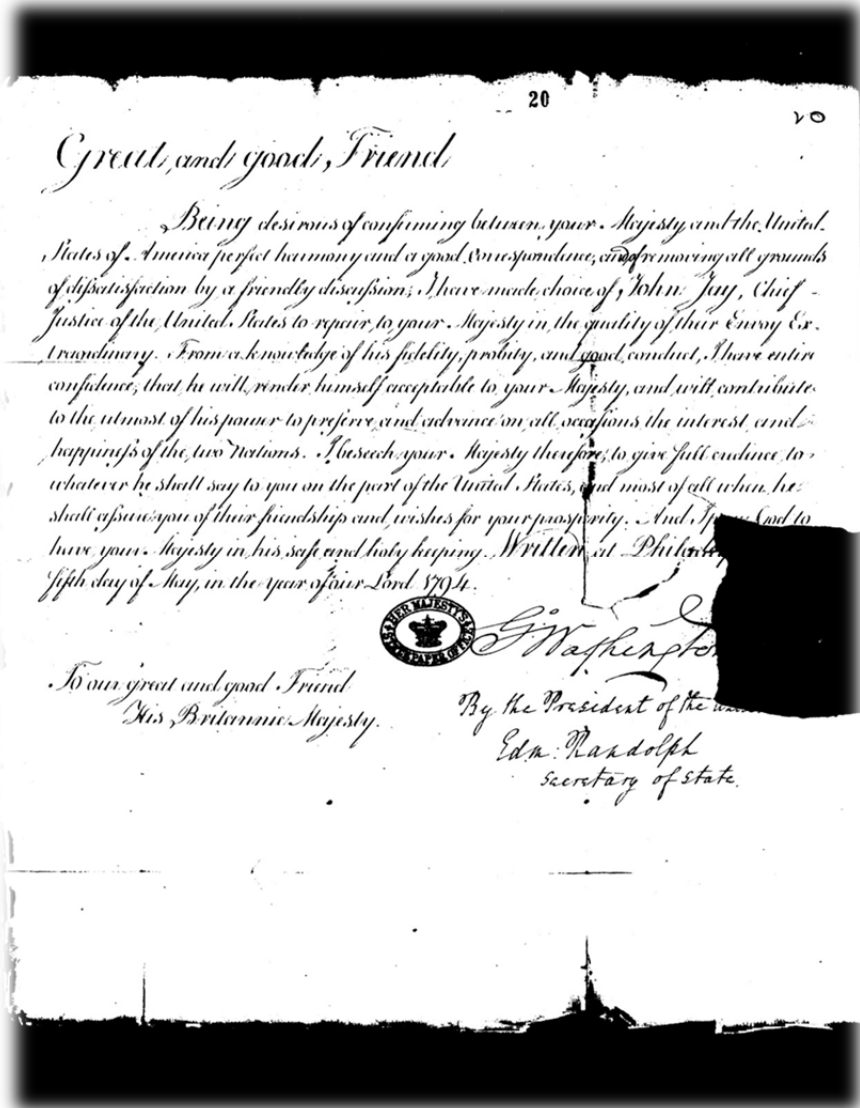 20
20
Great and good Friend
Being desirous of confirming between your Majesty and the United
States of America perfect harmony and a good correspondence, and of removing all grounds
of dissatisfaction by a friendly discussion; I have made choice of John Jay, Chief
Justice of the United States to repair to your Majesty in the quality of their Envoy Ex-
traordinary. From a knowledge of his fidelity, probity, and good conduct, I have entire
confidence, that he will render himself acceptable to your Majesty, and will contribute
to the utmost of his power to preserve and advance on all occasions the interest and
happiness of the two Nations. I beseech your Majesty therefore, to give full credence to
whatever he shall say to you on the part of the United States, and most of all when he
shall assure you of their friendship and wishes for your prosperity. And I God to
have your Majesty in his safe and holy keeping. Written at
fifth day of May, in the year of our Lord 1794.
HER MAJESTY'S
STATE PAPER OFFICE
G Washington
To our great and good Friend
His Britannic Majesty.
By the President of the
Edm: Randolph
Secretary of State.